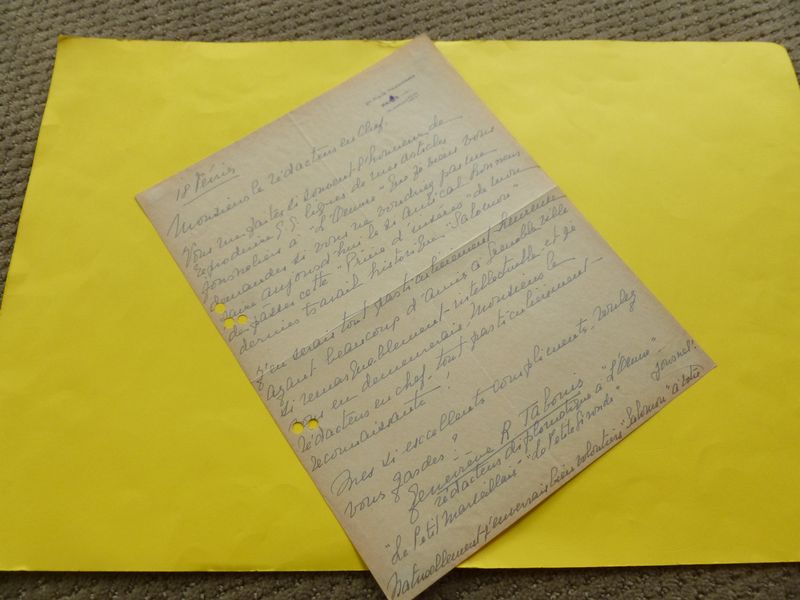 18 Février
Monsieur le rédacteur en chef,
Vous me faites si souvent l'honneur de
reproduire q.q. lignes de mes articles
journaliers à "L'Oeuvre" que je viens vous
demander si vous ne voudriez pas me
faire aujourd'hui le si amical honneur
de passer cette "Prime d'insérer" de mon
dernier travail historique "Salomon"
J'en serais tout particulièrement heureuse
ayant beaucoup d'amis à Grenoble ville
si remarquablement intellectuelle et je
vous en demeurerais, Monsieur le
rédacteur en chef, tout particulièrement
reconnaissante!
Mes si excellents compliments, voulez
vous garder?
Geneviève R Tabouis
rédacteur diplomatique à "L'Oeuvre"
"Le Petit Marseillais" "La Petite Gironde"
Naturellement j'enverrais bien volontiers "Salomon" à votre
journal.